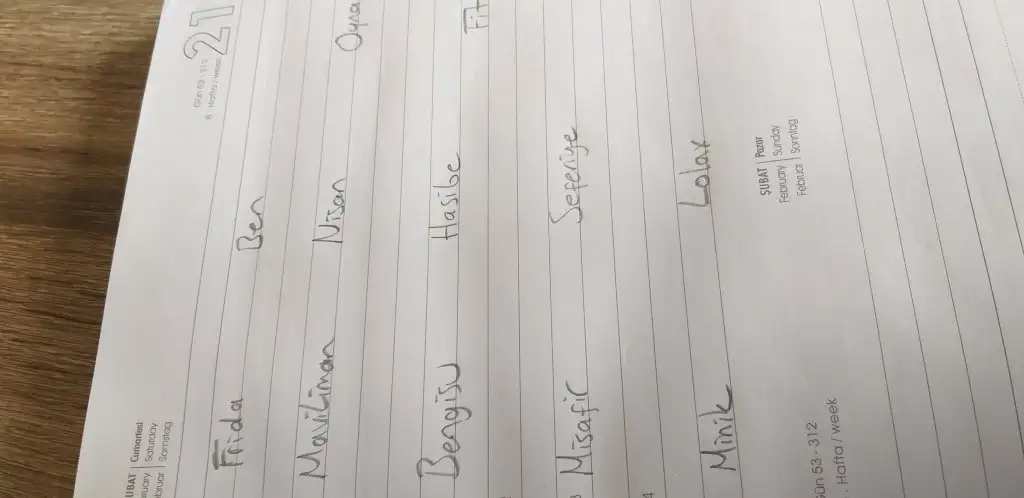 ŞUBAT | Cumartesi
ruary | Saturday
ebruar | Samstag
Gün 52 - 313
8 Hafta / week
21
Frida Ben
MaviLiman Nisan Oyna
Bengisu Hasibe Fit
Misafir Seferiye
Minik Lolax
ŞUBAT | Pazar
February | Sunday
Februar | Sonntag
Gün 53 - 312
Hafta / week